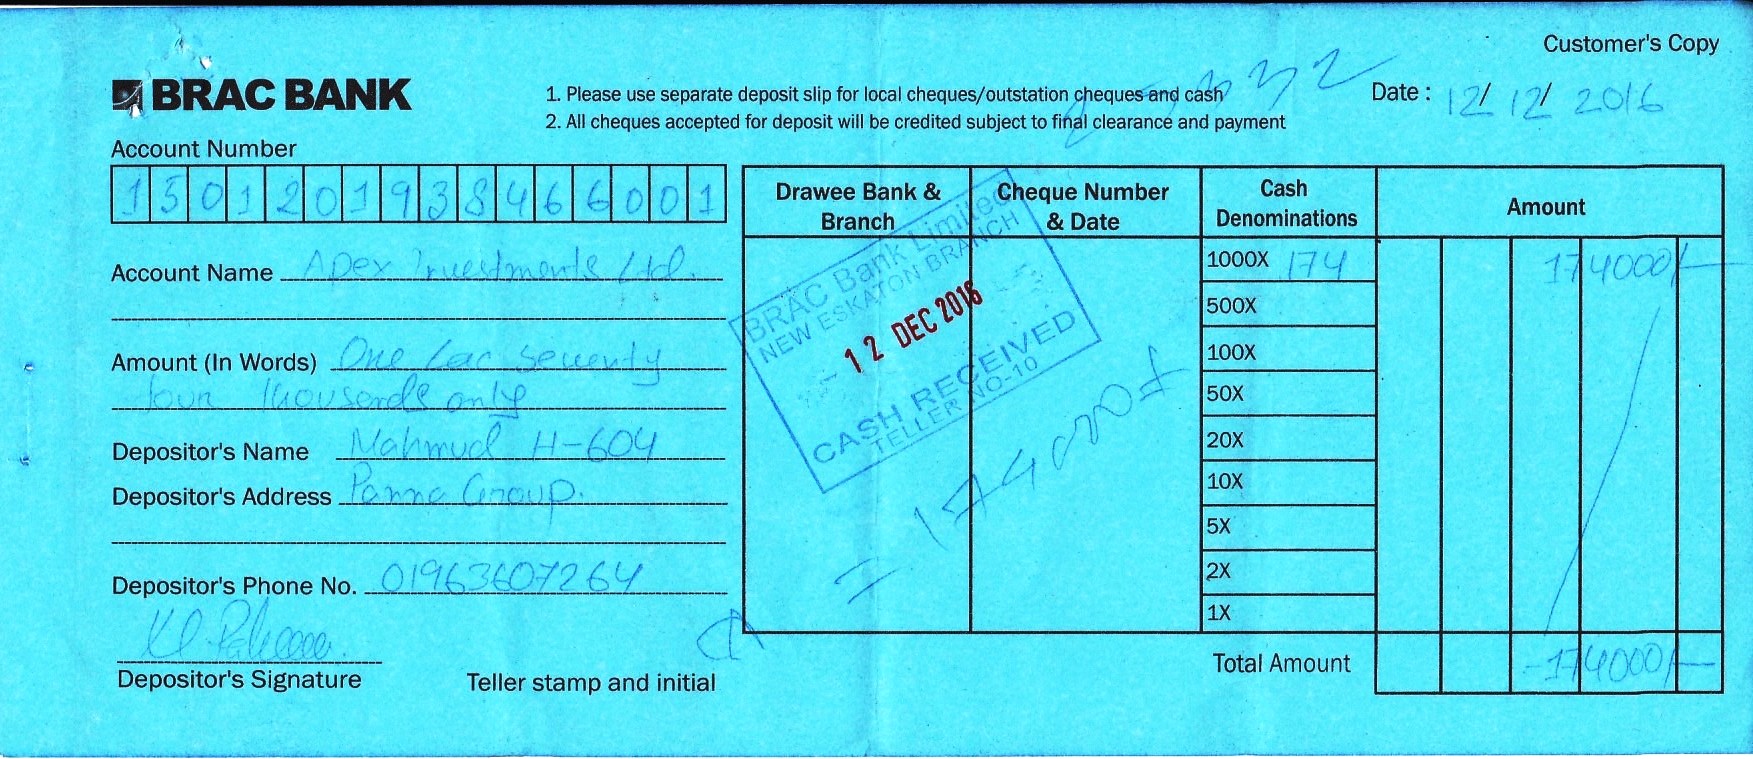 Customer's Copy
BRAC BANK
1. Please use separate deposit slip for local cheques/outstation cheques and cash
2. All cheques accepted for deposit will be credited subject to final clearance and payment
Date : 12/ 12/ 2016
Account Number
1501201938466001
Account Name Apex Investments Ltd.
Amount (In Words) One Lac Seventy
four thousands only
Depositor's Name Mahmud H-604
Depositor's Address Panna Group.
Depositor's Phone No. 01963607264
Depositor's Signature
Teller stamp and initial
Drawee Bank & Branch
Cheque Number & Date
Cash Denominations
Amount
1000X 174 174000/-
500X
100X
50X
20X
10X
5X
2X
1X
Total Amount 174000/-
BRAC Bank Limited
NEW ESKATON BRANCH
12 DEC 2016
CASH RECEIVED
TELLER NO-10
= 174000/-